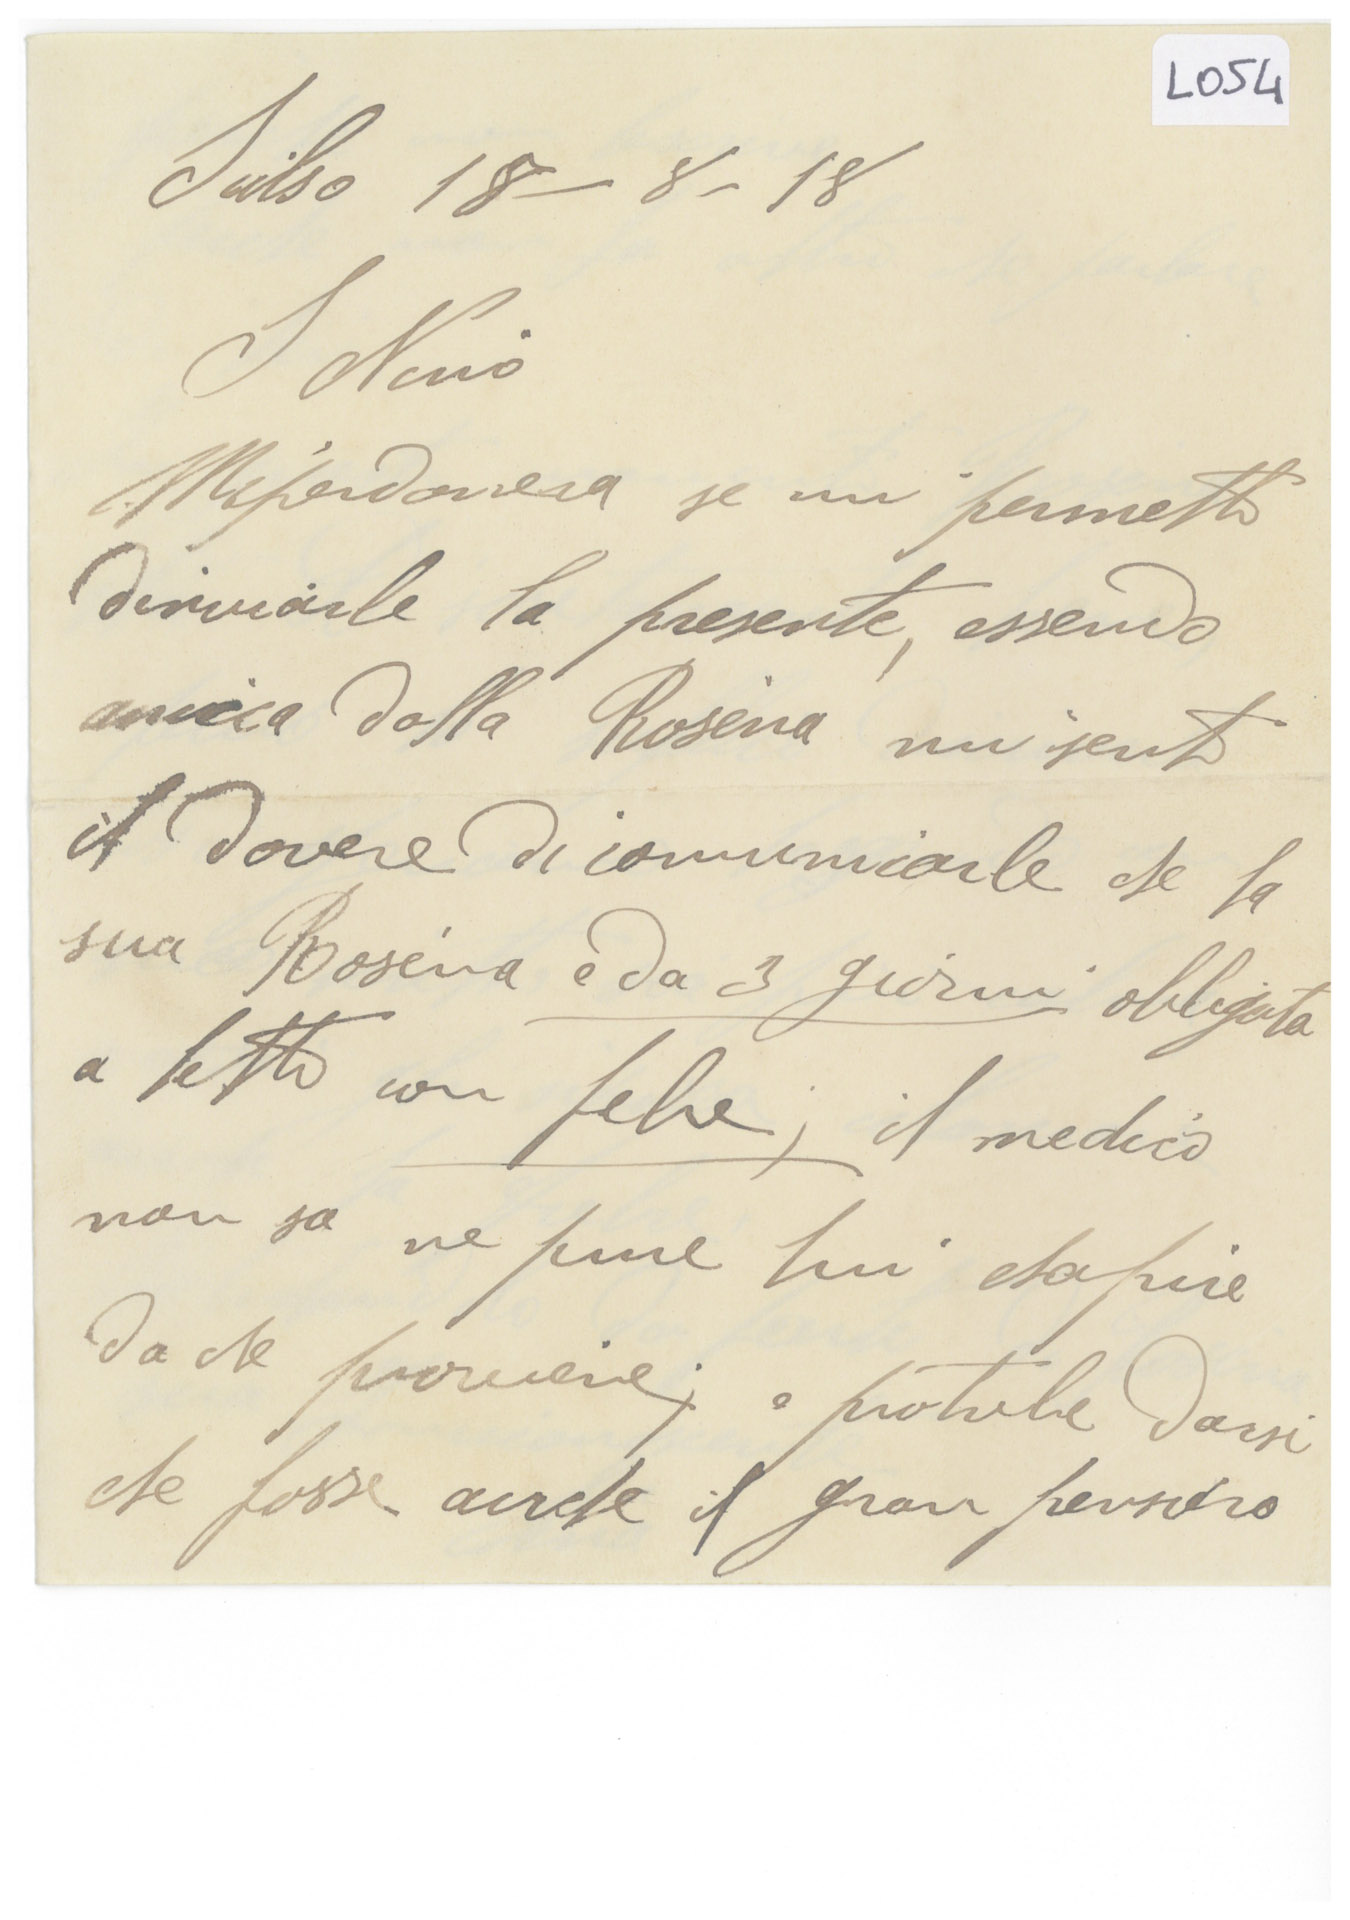 L054
18 - 8 - 18
S Nino
Mi perdonera se mi permetto
dinviarle la presente, essendo
amica della Rosina mi sento
il dovere di comunicarle che la
sua Rosina e da 3 giorni obbligata
a letto con febre, il medico
non sa ne pure lui chapire
da che proviene, e potrebe darsi
che fosse anche il gran pensiero